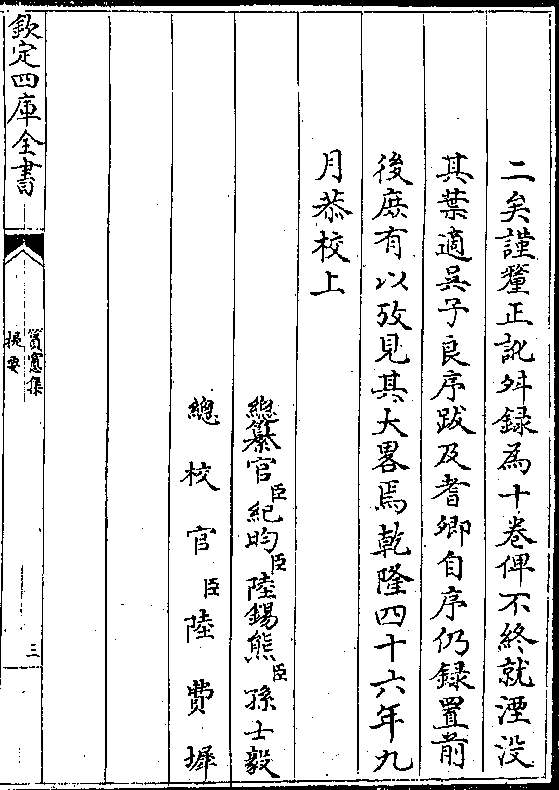 二矣謹釐正訛舛録為十卷俾不終就湮没
其葉適吳子良序跋及耆卿自序仍録置前
後庶有以攷見其大畧焉乾隆四十六年九
月恭校上
總纂官臣紀昀臣陸錫熊臣孫士毅
總校官臣陸費墀
欽定四庫全書
篔窻集
提要
三